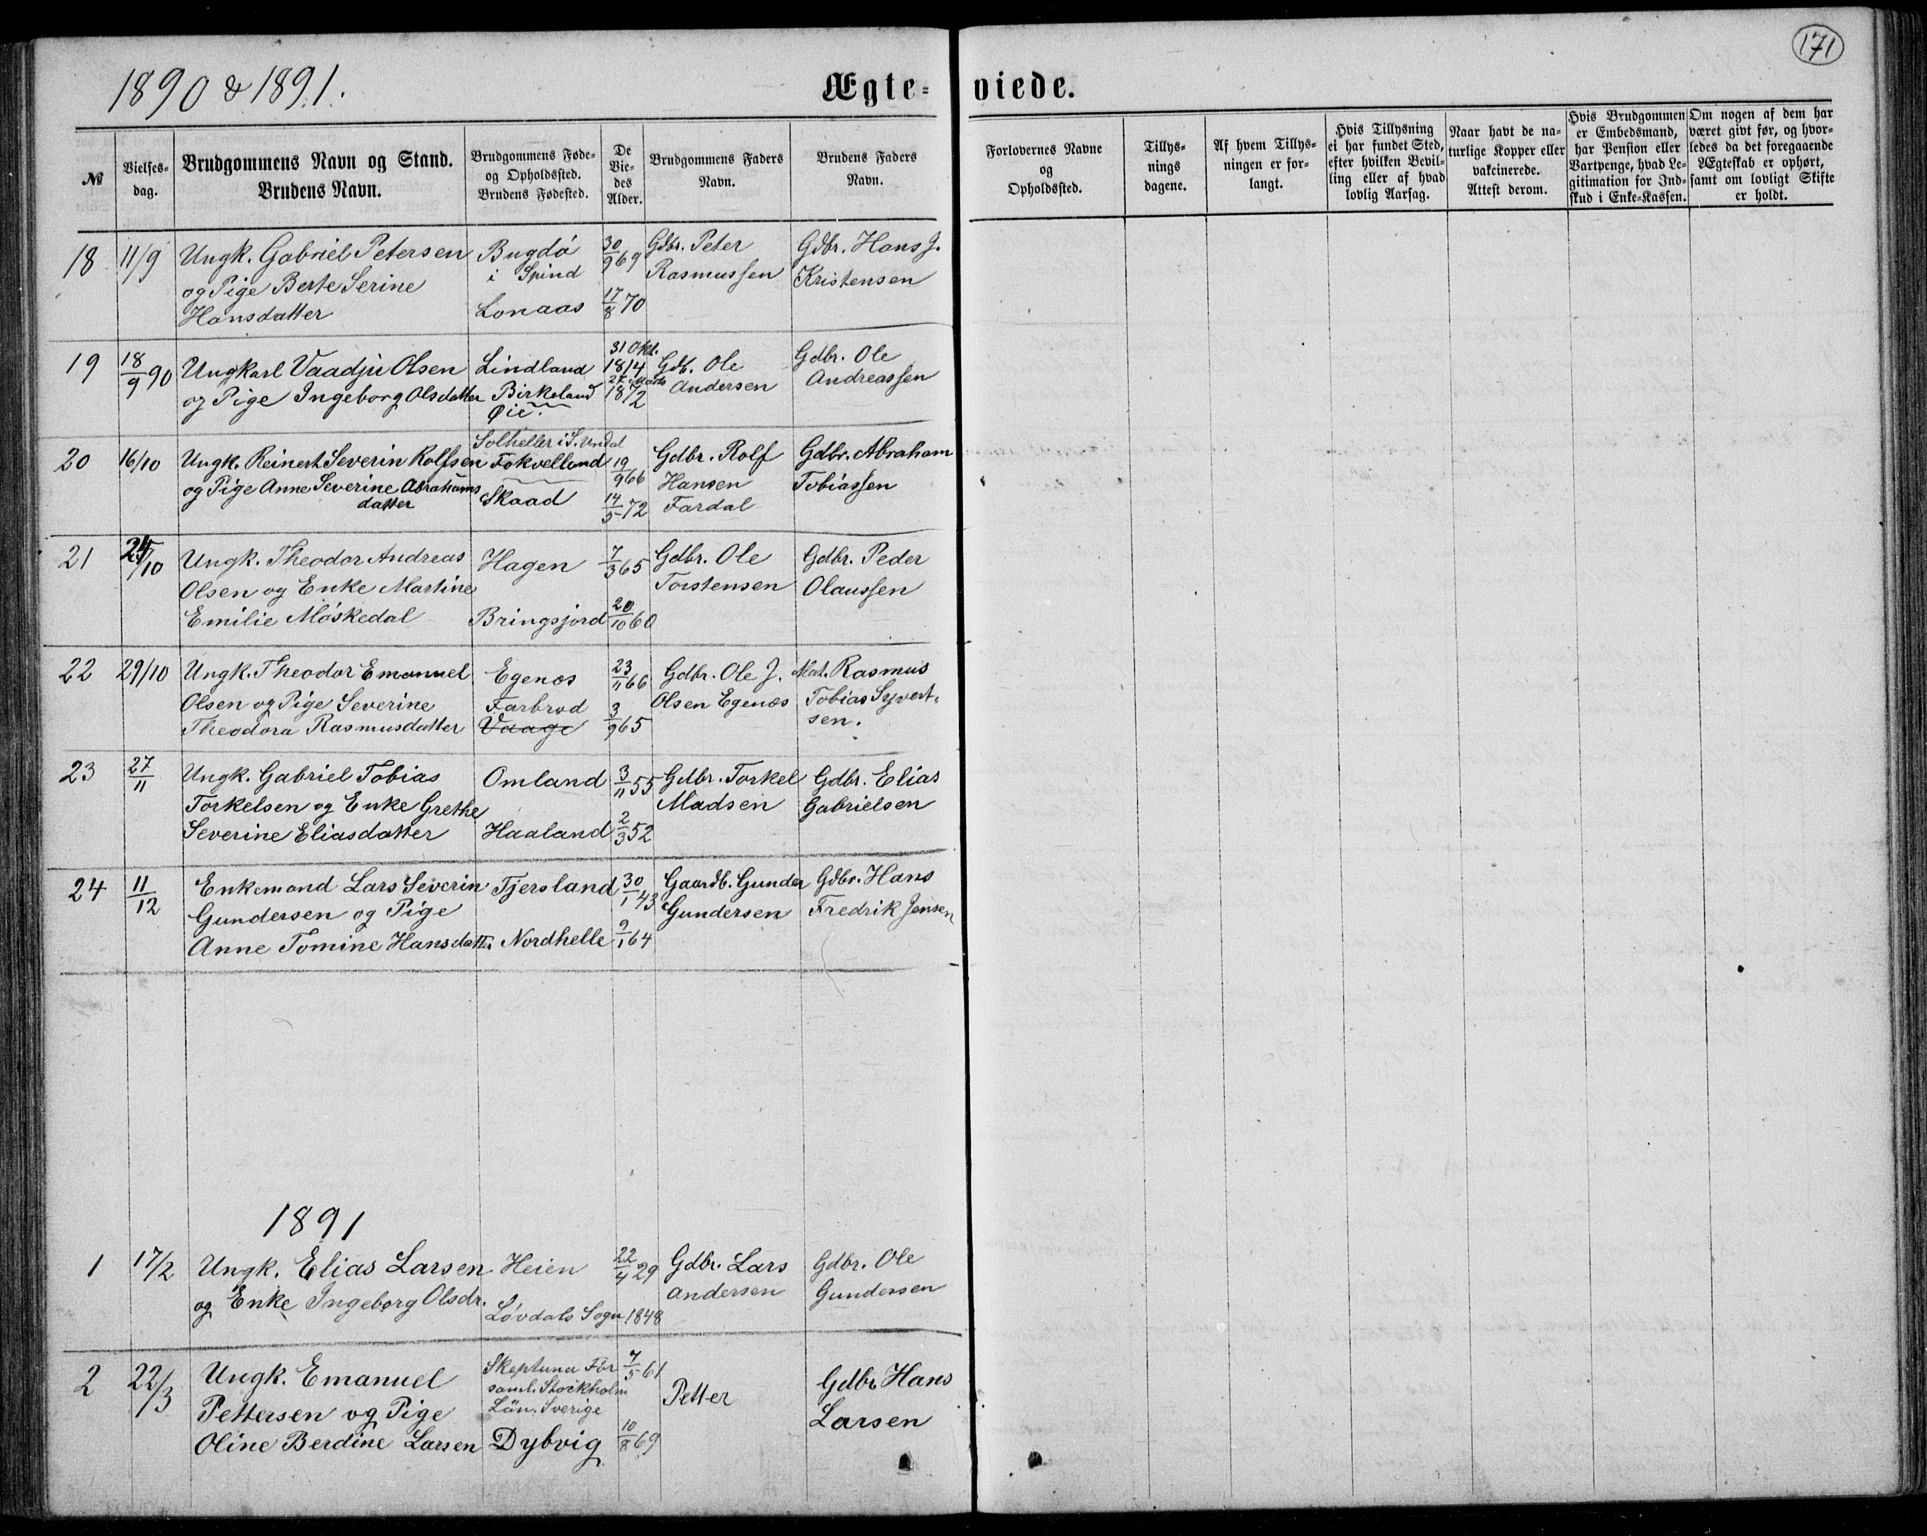 171
1890 & 1891.
Ægte= viede.
№
Vielses-
dag.
Brudgommens Navn og Stand.
Brudens Navn.
Brudgommens Føde-
og Opholdssted.
Brudens Fødested.
De
Vie-
des
Alder.
Brudgommens Faders
Navn.
Brudens Faders
Navn.
Forlovernes Navne
og
Opholdssted.
Tillys-
nings
dagene.
Af hvem Tillys-
ningen er for-
langt.
Hvis Tillysning
ei har fundet Sted,
efter hvilken Bevil-
ling eller af hvad
lovlig Aarsag.
Naar havt de na-
turlige Kopper eller
vakcinerede.
Attest derom.
Hvis Brudgommen
er Embedsmand,
har Pension eller
Vartpenge, hvad Le-
gitimation for Ind-
skud i Enke-Kassen.
Om nogen af dem har
været givt før, og hvor-
ledes da det foregaaende
Ægteskab er ophørt,
samt om lovligt Skifte
er holdt.
18 11/9 Ungk. Gabriel Petersen Bugdö 30/9 69 Gdbr. Peter Gdbr. Hans J.
og Pige Berte Serine i Spind Rasmussen Kristensen
Hansdatter Lonaas 17/8 70
19 18/9 90 Ungkarl Vaadju Olsen Lindland 31 Okt. 1814 Gdb. Ole Gdbr. Ole
og Pige Ingeborg Olsdatter Birkeland 27 Marts 1872 Andersen Andreassen
Øie.
Solheller i S. Undal
20 16/10 Ungk. Reinert Severin Rolfsen Fokvelland 19/9 66 Gdbr. Rolf Gdbr. Abraham
og Pige Anne Severine Abrahams Skaad 14/5 72 Hansen Tobiassen
datter Fardal
21 24/10 Ungk. Theodor Andreas Hagen 7/3 65 Gdbr. Ole Gdbr. Peder
Olsen og Enke Martine Torstensen Olaussen
Emilie Möskedal Bringsjord 20/10 60
22 29/10 Ungk. Theodor Emanuel Egenæs 23/11 66 Gdbr. Ole J. Mat. Rasmus
Olsen og Pige Severine Farbrod 3/9 65 Olsen Egenæs Tobias Syvert-
Theodora Rasmusdatter Vaage sen.
23 27/11 Ungk. Gabriel Tobias Omland 3/11 55 Gdbr. Torkel Gdbr. Elias
Torkelsen og Enke Grethe Madsen Gabrielsen
Severine Eliasdatter Haaland 2/3 52
24 11/12 Enkemand Lars Severin Tjersland 30/1 43 Gaardb. Gunder Gdbr. Hans
Gundersen og Pige Gundersen Fredrik Jensen
Anne Tomine Hansdatt. Nordhelle 9/1 64
1891
1 17/2 Ungk. Elias Larsen Heien 22/4 29 Gdbr. Lars Gdbr. Ole
og Enke Ingeborg Olsdr. Lövdals Sogn 1848 Andersen Gundersen
2 22/3 Ungk. Emanuel Skeptuna För 7/5 61 Petter Gdbr. Hans
Pettersen og Pige saml. Stockholm Larsen
Län. Sverige
Oline Berdine Larsen Dybvig 10/8 69